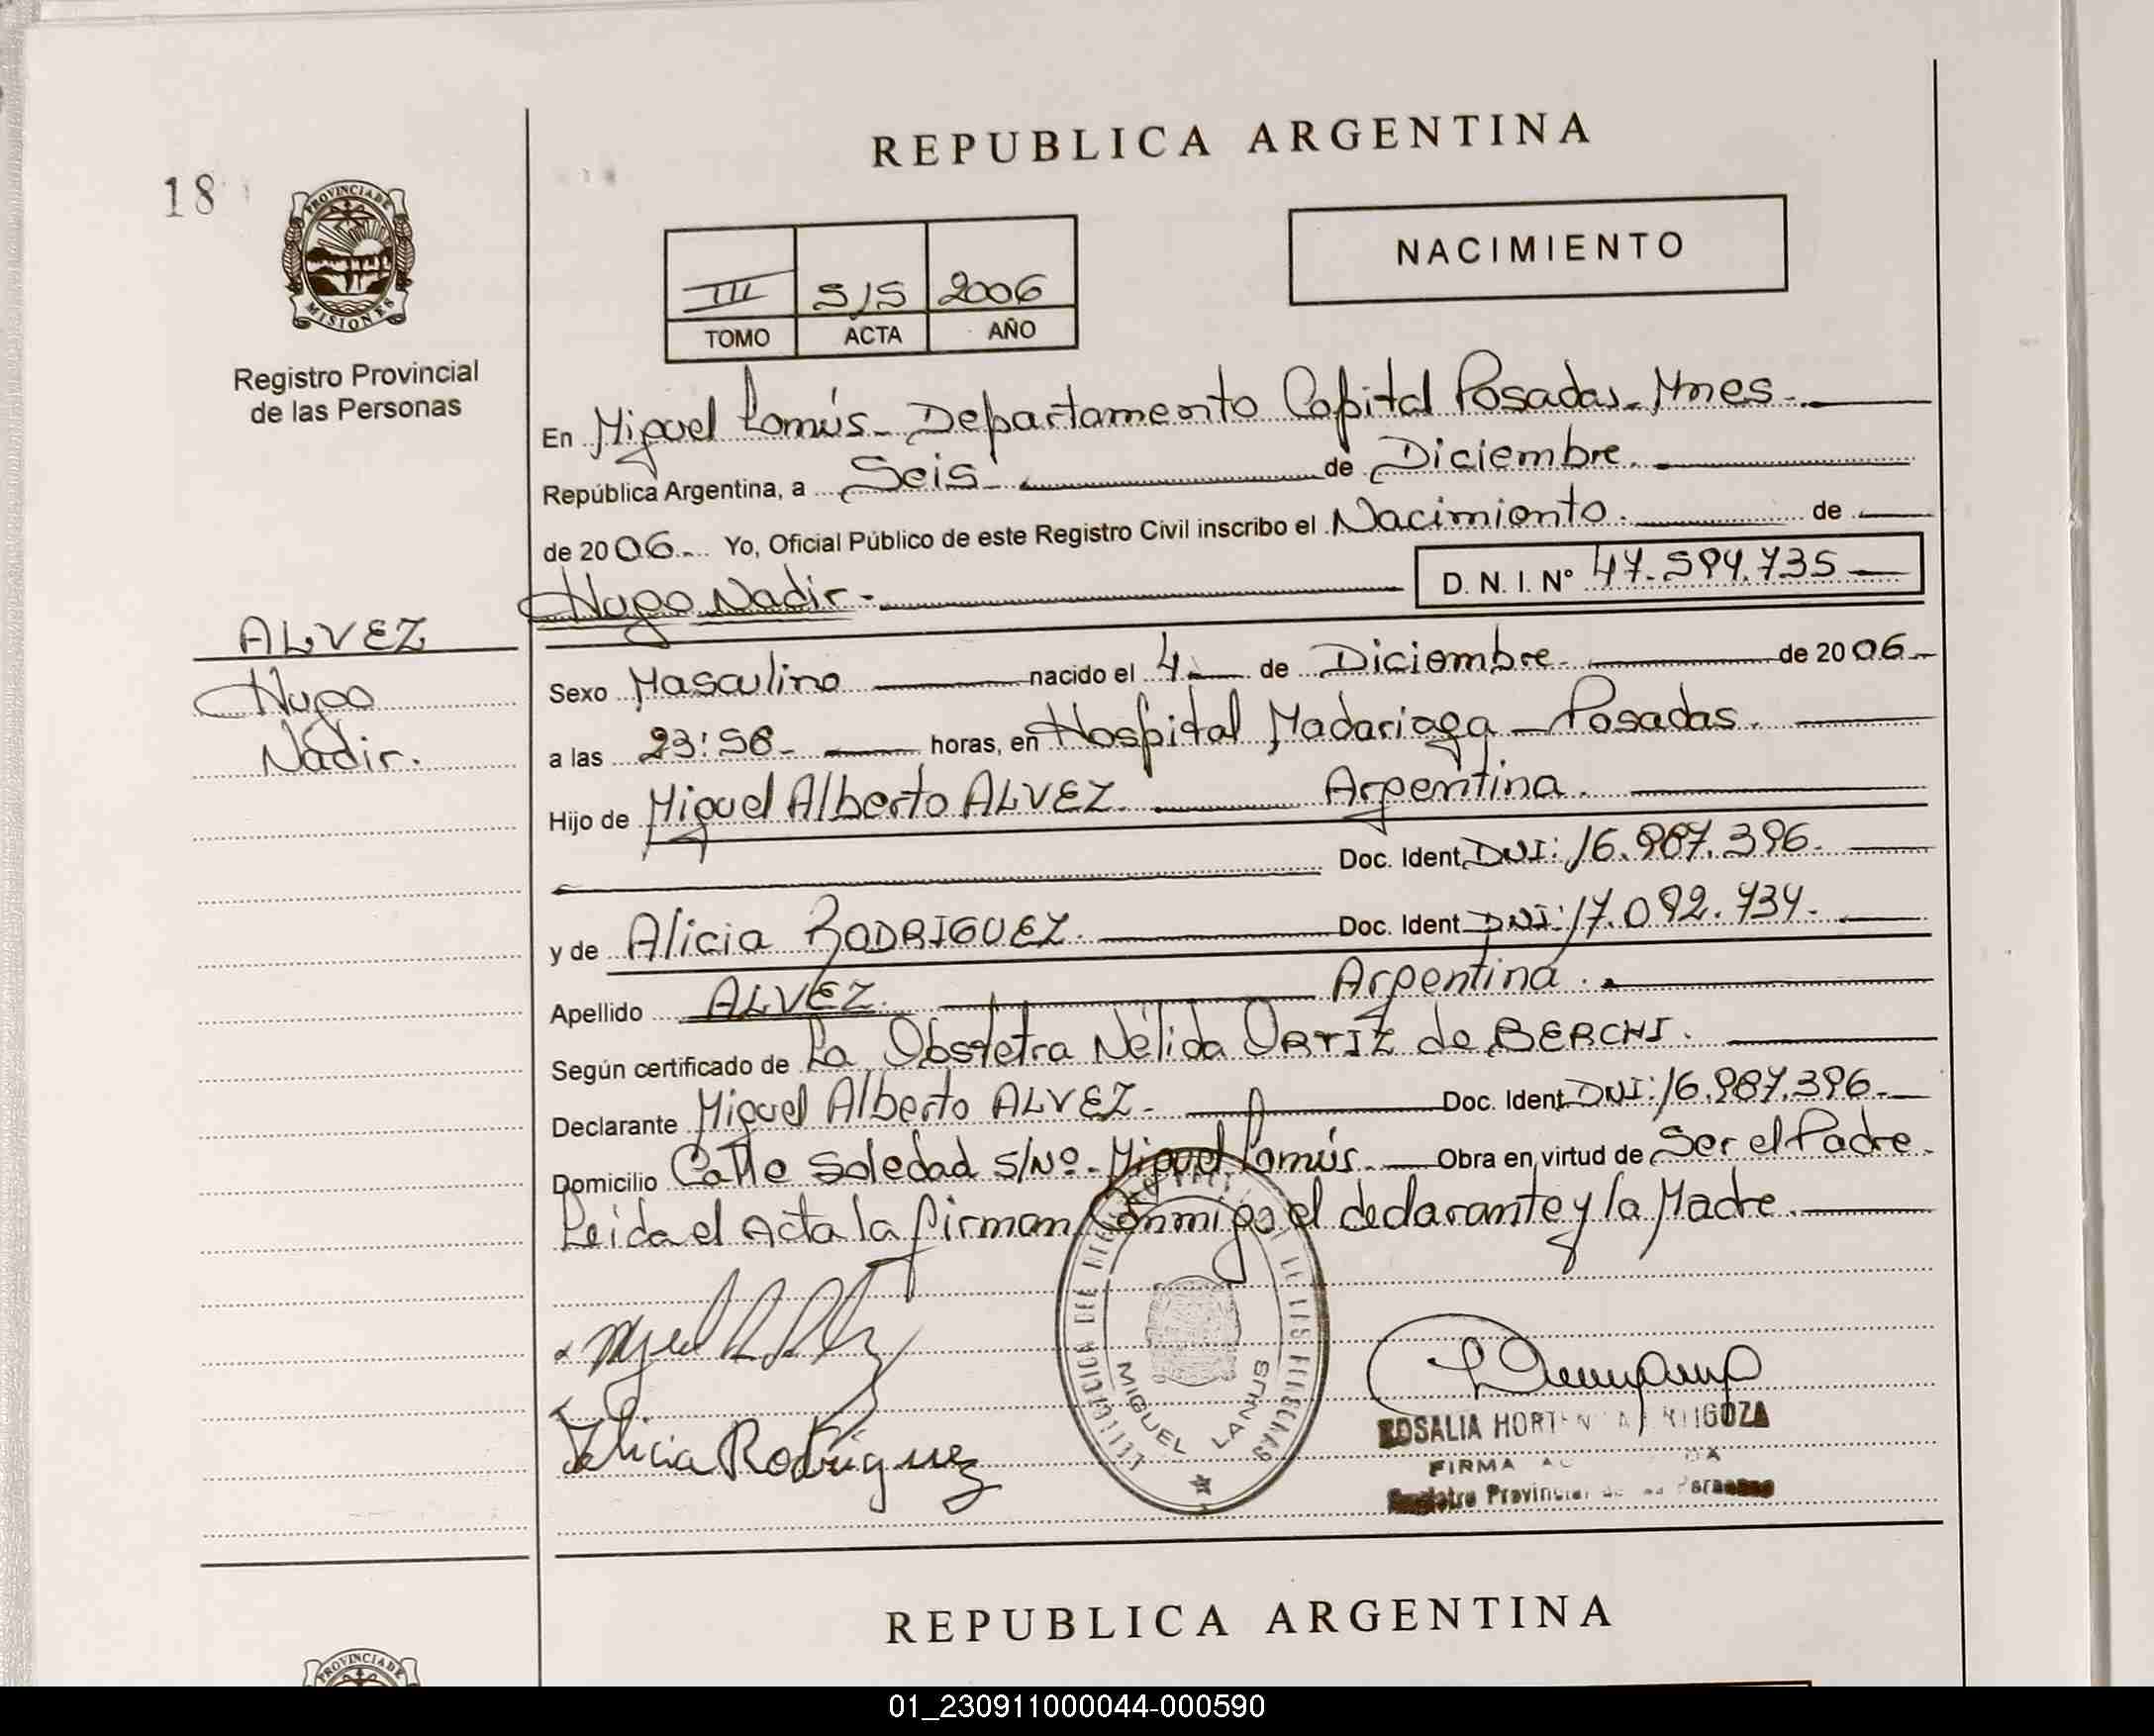 REPUBLICA ARGENTINA
18
PROVINCIA DE
MISIONES
Registro Provincial
de las Personas
NACIMIENTO
III 515 2006
TOMO ACTA AÑO
En Miguel Lanús - Departamento Capital Posadas - Mnes -
República Argentina, a Seis de Diciembre
de 2006 Yo, Oficial Público de este Registro Civil inscribo el Nacimiento de
Hugo Nadir - D. N. I. Nº 47.594.735
ALVEZ
Hugo
Nadir.
Sexo Masculino nacido el 4 de Diciembre de 2006
a las horas, en Hospital Madariaga - Posadas.
Hijo de Miguel Alberto ALVEZ. Argentina.
Doc. Ident. DNI: 16.987.396.
y de Alicia RODRIGUEZ. Doc. Ident DNI: 17.092.734.
Apellido ALVEZ. Argentina.
Según certificado de La Obstetra Nélida ORTIZ de BERCHI.
Declarante Miguel Alberto ALVEZ - Doc. Ident DNI: 16.987.396.
Domicilio Calle Soledad S/Nº - Miguel Lanús. Obra en virtud de Ser el Padre.
Leida el Acta la firman conmigo el declarante y la Madre.
MIGUEL LANUS
Alicia Rodriguez
ROSALIA
FIRMA
Registro Provincial
REPUBLICA ARGENTINA
PROVINCIA DE
01_230911000044-000590